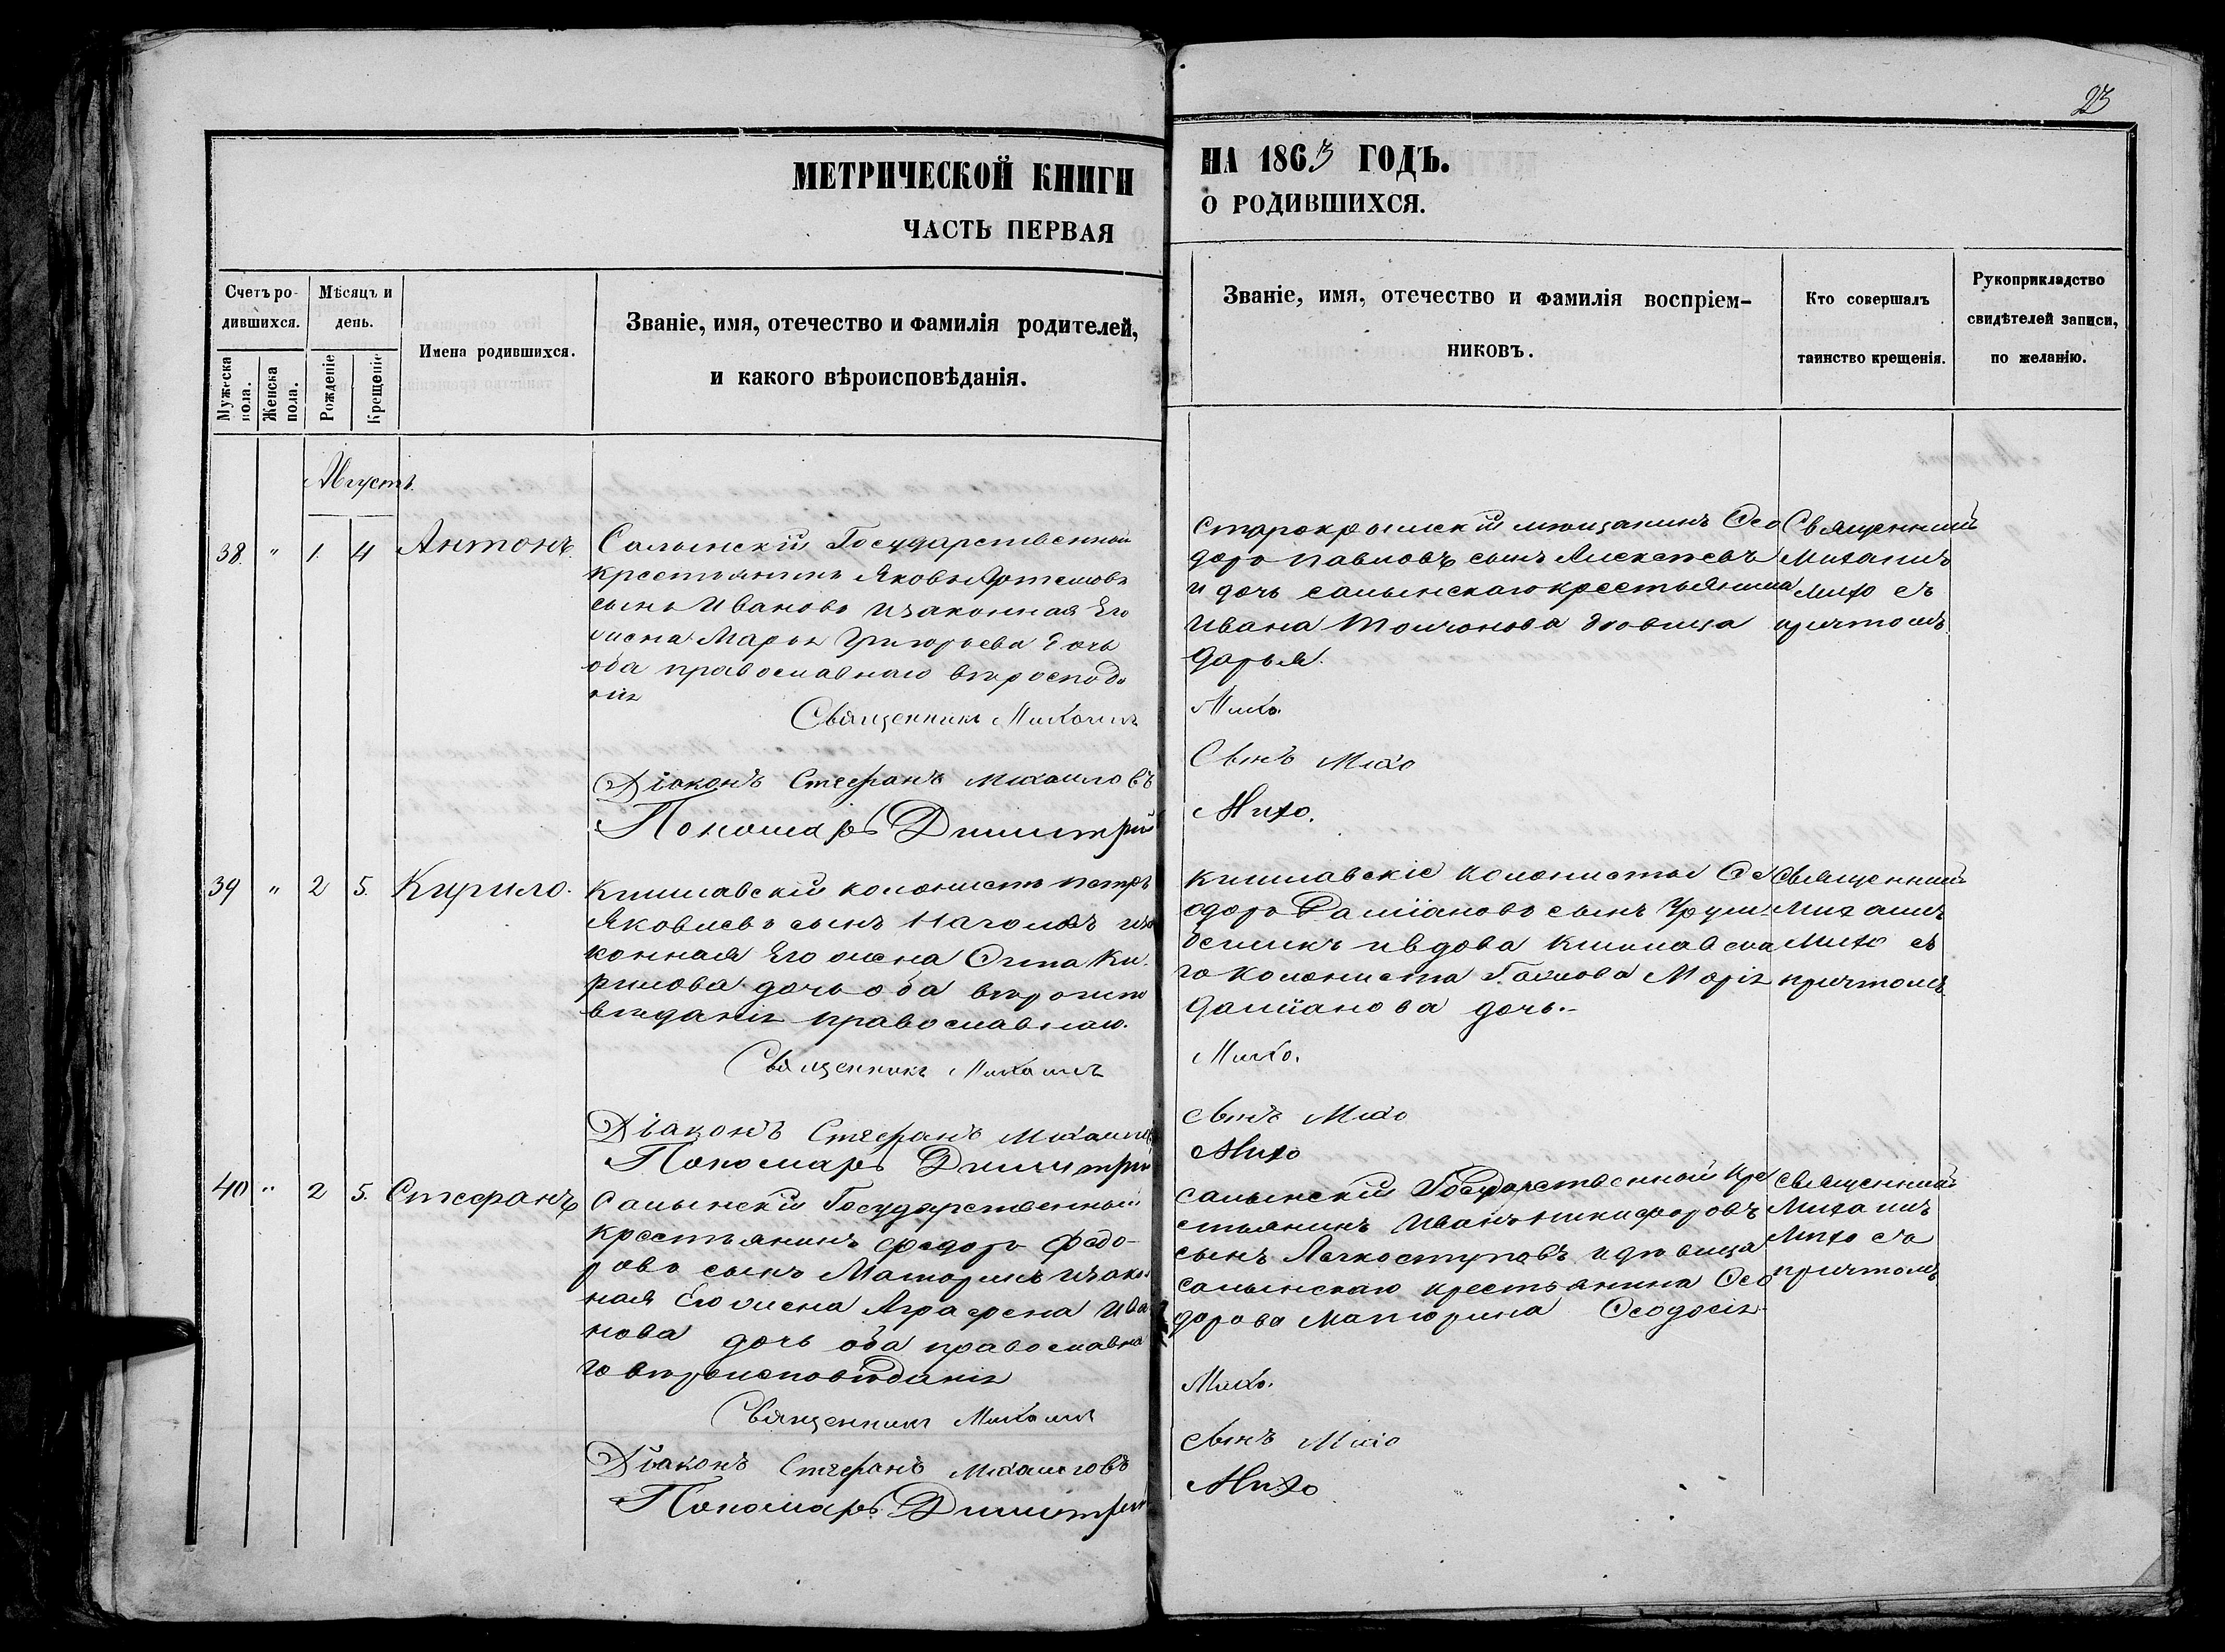 23
МЕТРИЧЕСКОЙ КНИГИ НА 1863 ГОДЪ.
ЧАСТЬ ПЕРВАЯ О РОДИВШИХСЯ.
Счетъ родившихся.
Мужеска пола.
Женска пола.
Мѣсяцъ и день.
Рожденіе
Крещеніе
Имена родившихся.
Званіе, имя, отечество и фамилія родителей,
и какого вѣроисповѣданія.
Званіе, имя, отечество и фамилія воспріем-
никовъ.
Кто совершалъ
таинство крещенія.
Рукоприкладство
свидѣтелей записи,
по желанію.
Августъ
38. " 1. 4 Антонъ.
Салынскій Государственной
крестьянинъ Яковъ Артемовъ
сынъ Ивановъ изаконная Его
жена Марья Григорьева дочь
оба православнаго вѣроисповѣ
нія
Священникъ Михаилъ
Діаконъ Стефанъ Михаиловъ
Пономарь Димитрій
Старокрымскій мѣщанинъ Ѳео
доръ Павловъ сынъ Алексѣевъ
и дочь салынскаго крестьянина
Ивана Толчонова дѣвица
Дарья.
Михо.
Сынъ Михо
Михо.
Священникъ
Михаилъ
Михо съ
причтомъ
39 " 2 5. Кирило.
Кишлавскій колонистъ Петръ
Яковлевъ сынъ
конная Его жена Анна Ки-
рилова дочь оба вѣроиспо
вѣданія православнаго.
Священникъ Михаилъ
Діаконъ Стефанъ Михаиловъ
Пономарь Димитрій
Кишлавскіе колонисты Ѳе
одоръ Даміановъ сынъ
и вдова Кишлавска
го колониста Марія
Даміанова дочь.-
Михо.
Сынъ Михо
Михо
Священникъ
Михаилъ
Михо съ
причтомъ
40 " 2 5. Стефанъ
Салынскій Государственный
крестьянинъ Федоръ Федо-
ровъ сынъ Маторинъ изакон
ная Его жена Аграфена Ива
нова дочь оба православна
го вѣроисповѣданія
Священникъ Михаилъ
Діаконъ Стефанъ Михаиловъ
Пономарь Димитрій
Салынскій Государственной кре
стьянинъ Иванъ Никифоровъ
сынъ Легкоступовъ и дѣвица
салынскаго крестьянина Ѳео
дорова Маторина Ѳеодосія
Михо.
Сынъ Михо
Михо
Священникъ
Михаилъ
Михо съ
причтомъ